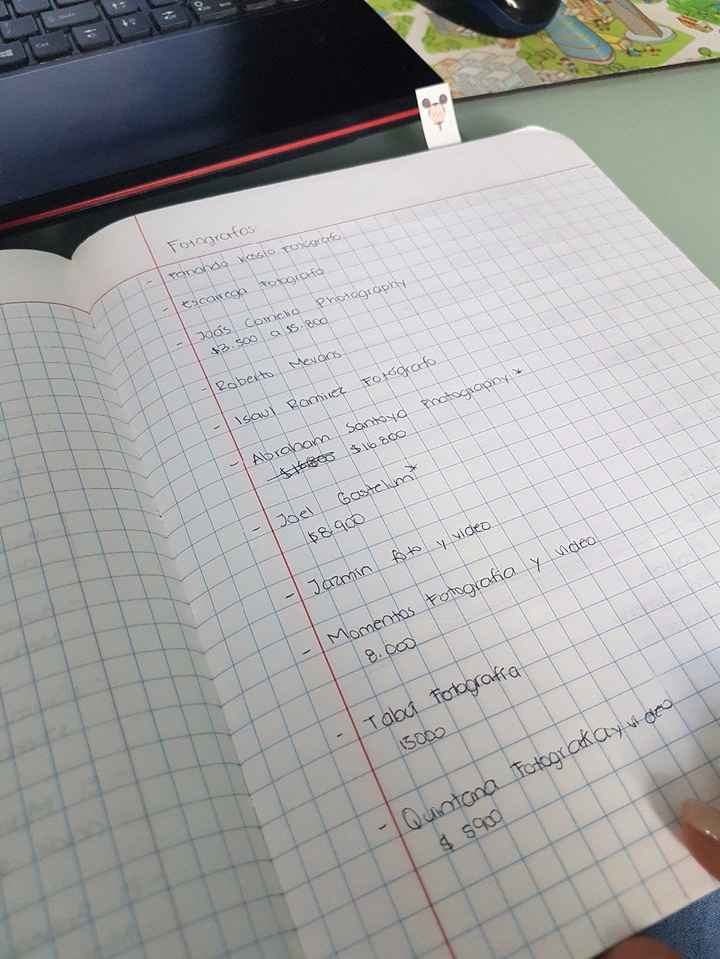 Fotografos
- Fernanda Kesslo Fotografo
- Escarrega Fotografo
- Joás Cornelio Photography
$3.500 a $5.800
- Roberto Mevans
- Isaul Ramirez Fotografo
- Abraham Santoyo Photography *
$16.800
- Joel Gastelum *
$8.900
- Jazmin foto y video
- Momentos Fotografia y video
8.000
- Tabai Fotografia
15000
- Quintana Fotografia y video
$ 5900